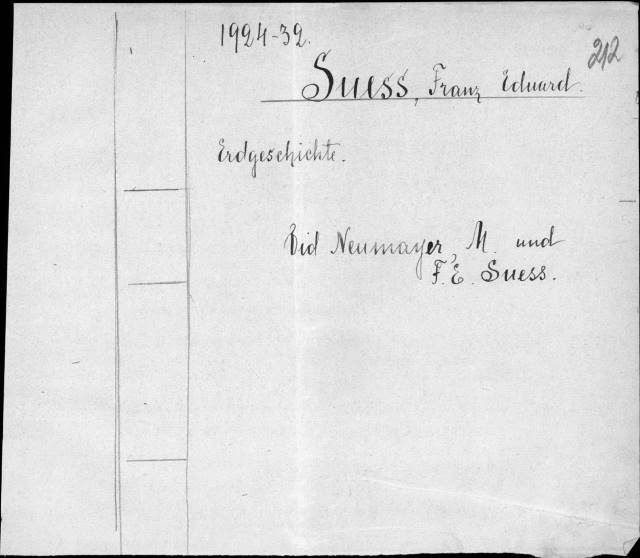 1924-32.
212
Suess, Franz Eduard.
Erdgeschichte.
Vid Neumayer, M. und
F. E. Suess.